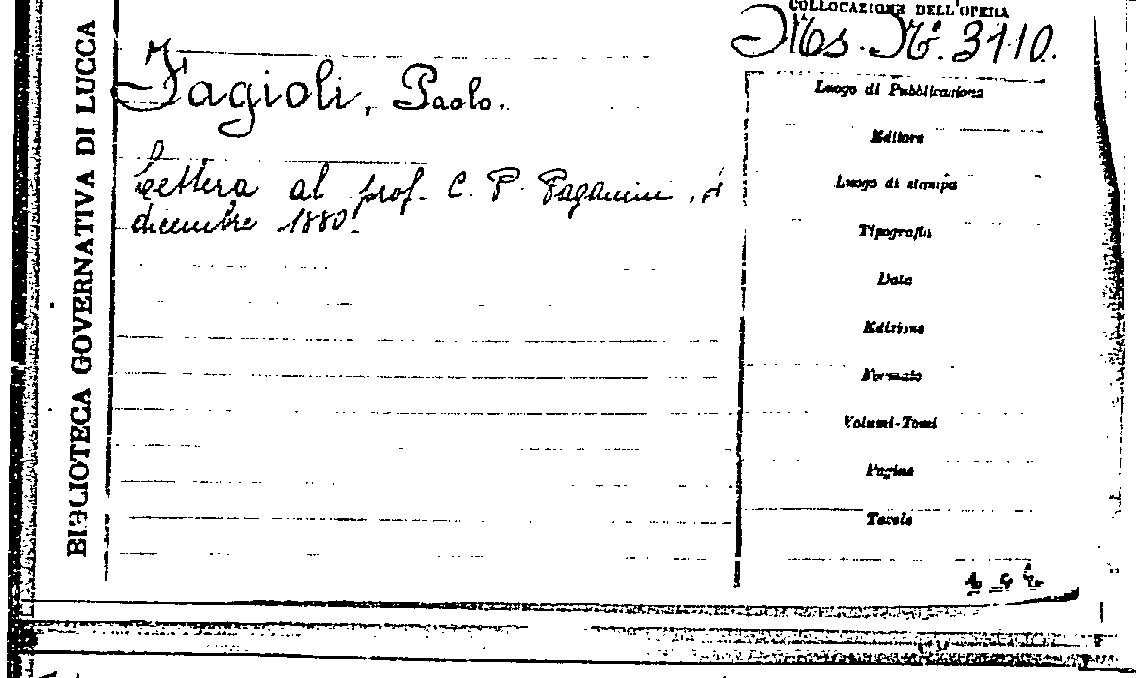 BIBLIOTECA GOVERNATIVA DI LUCCA
COLLOCAZIONE DELL'OPERA
Ms. N. 3110.
Fagioli, Paolo.
Lettera al prof. C. P. Paganini,
dicembre 1880.
Luogo di Pubblicazione
Editore
Luogo di stampa
Tipografia
Data
Edizione
Formato
Volumi-Tomi
Pagine
Tavole